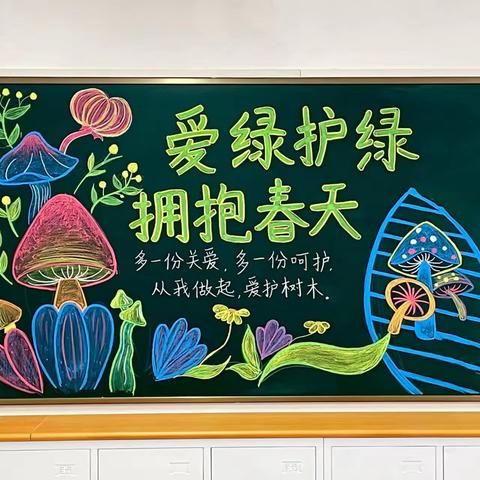 爱绿护绿
拥抱春天
多一份关爱,多一份呵护.
从我做起,爱护树木。